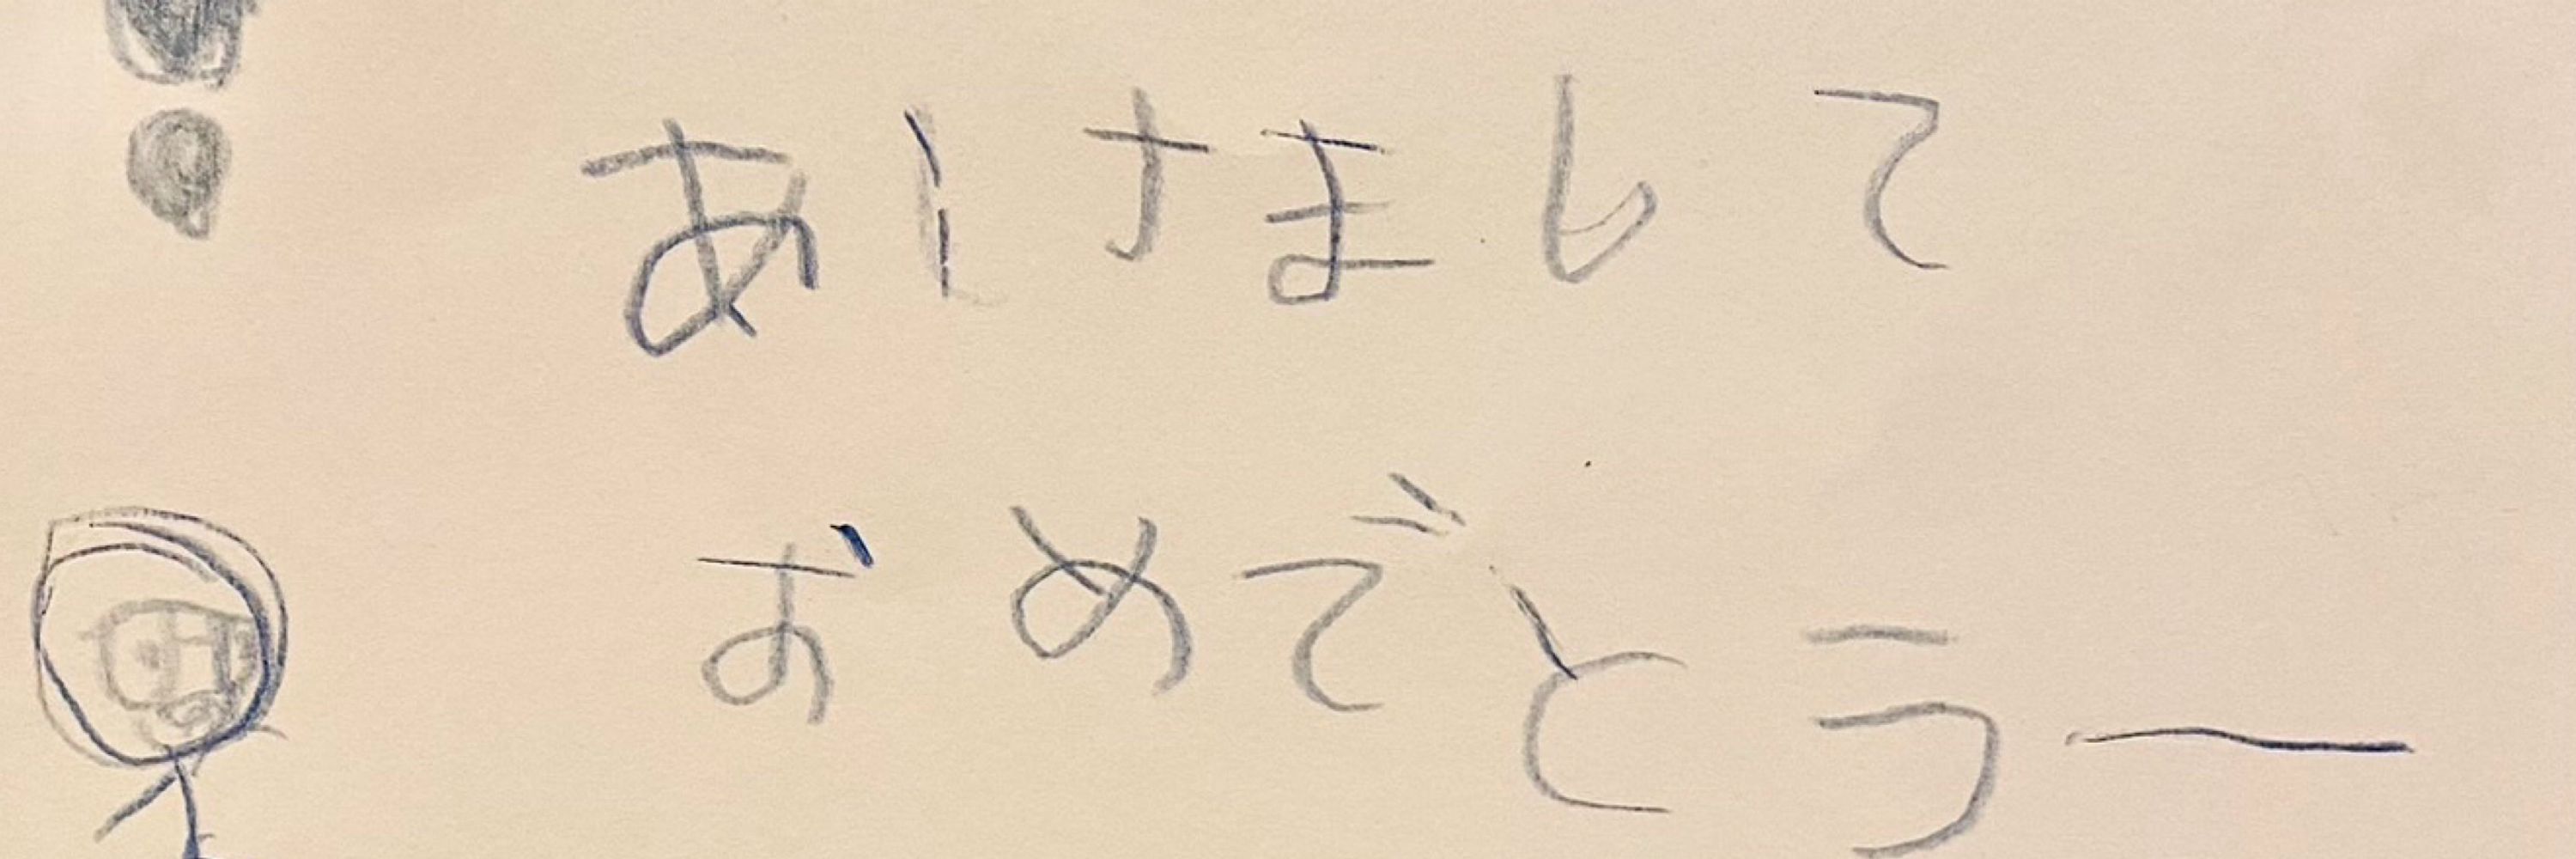 あけまして
おめでとうー